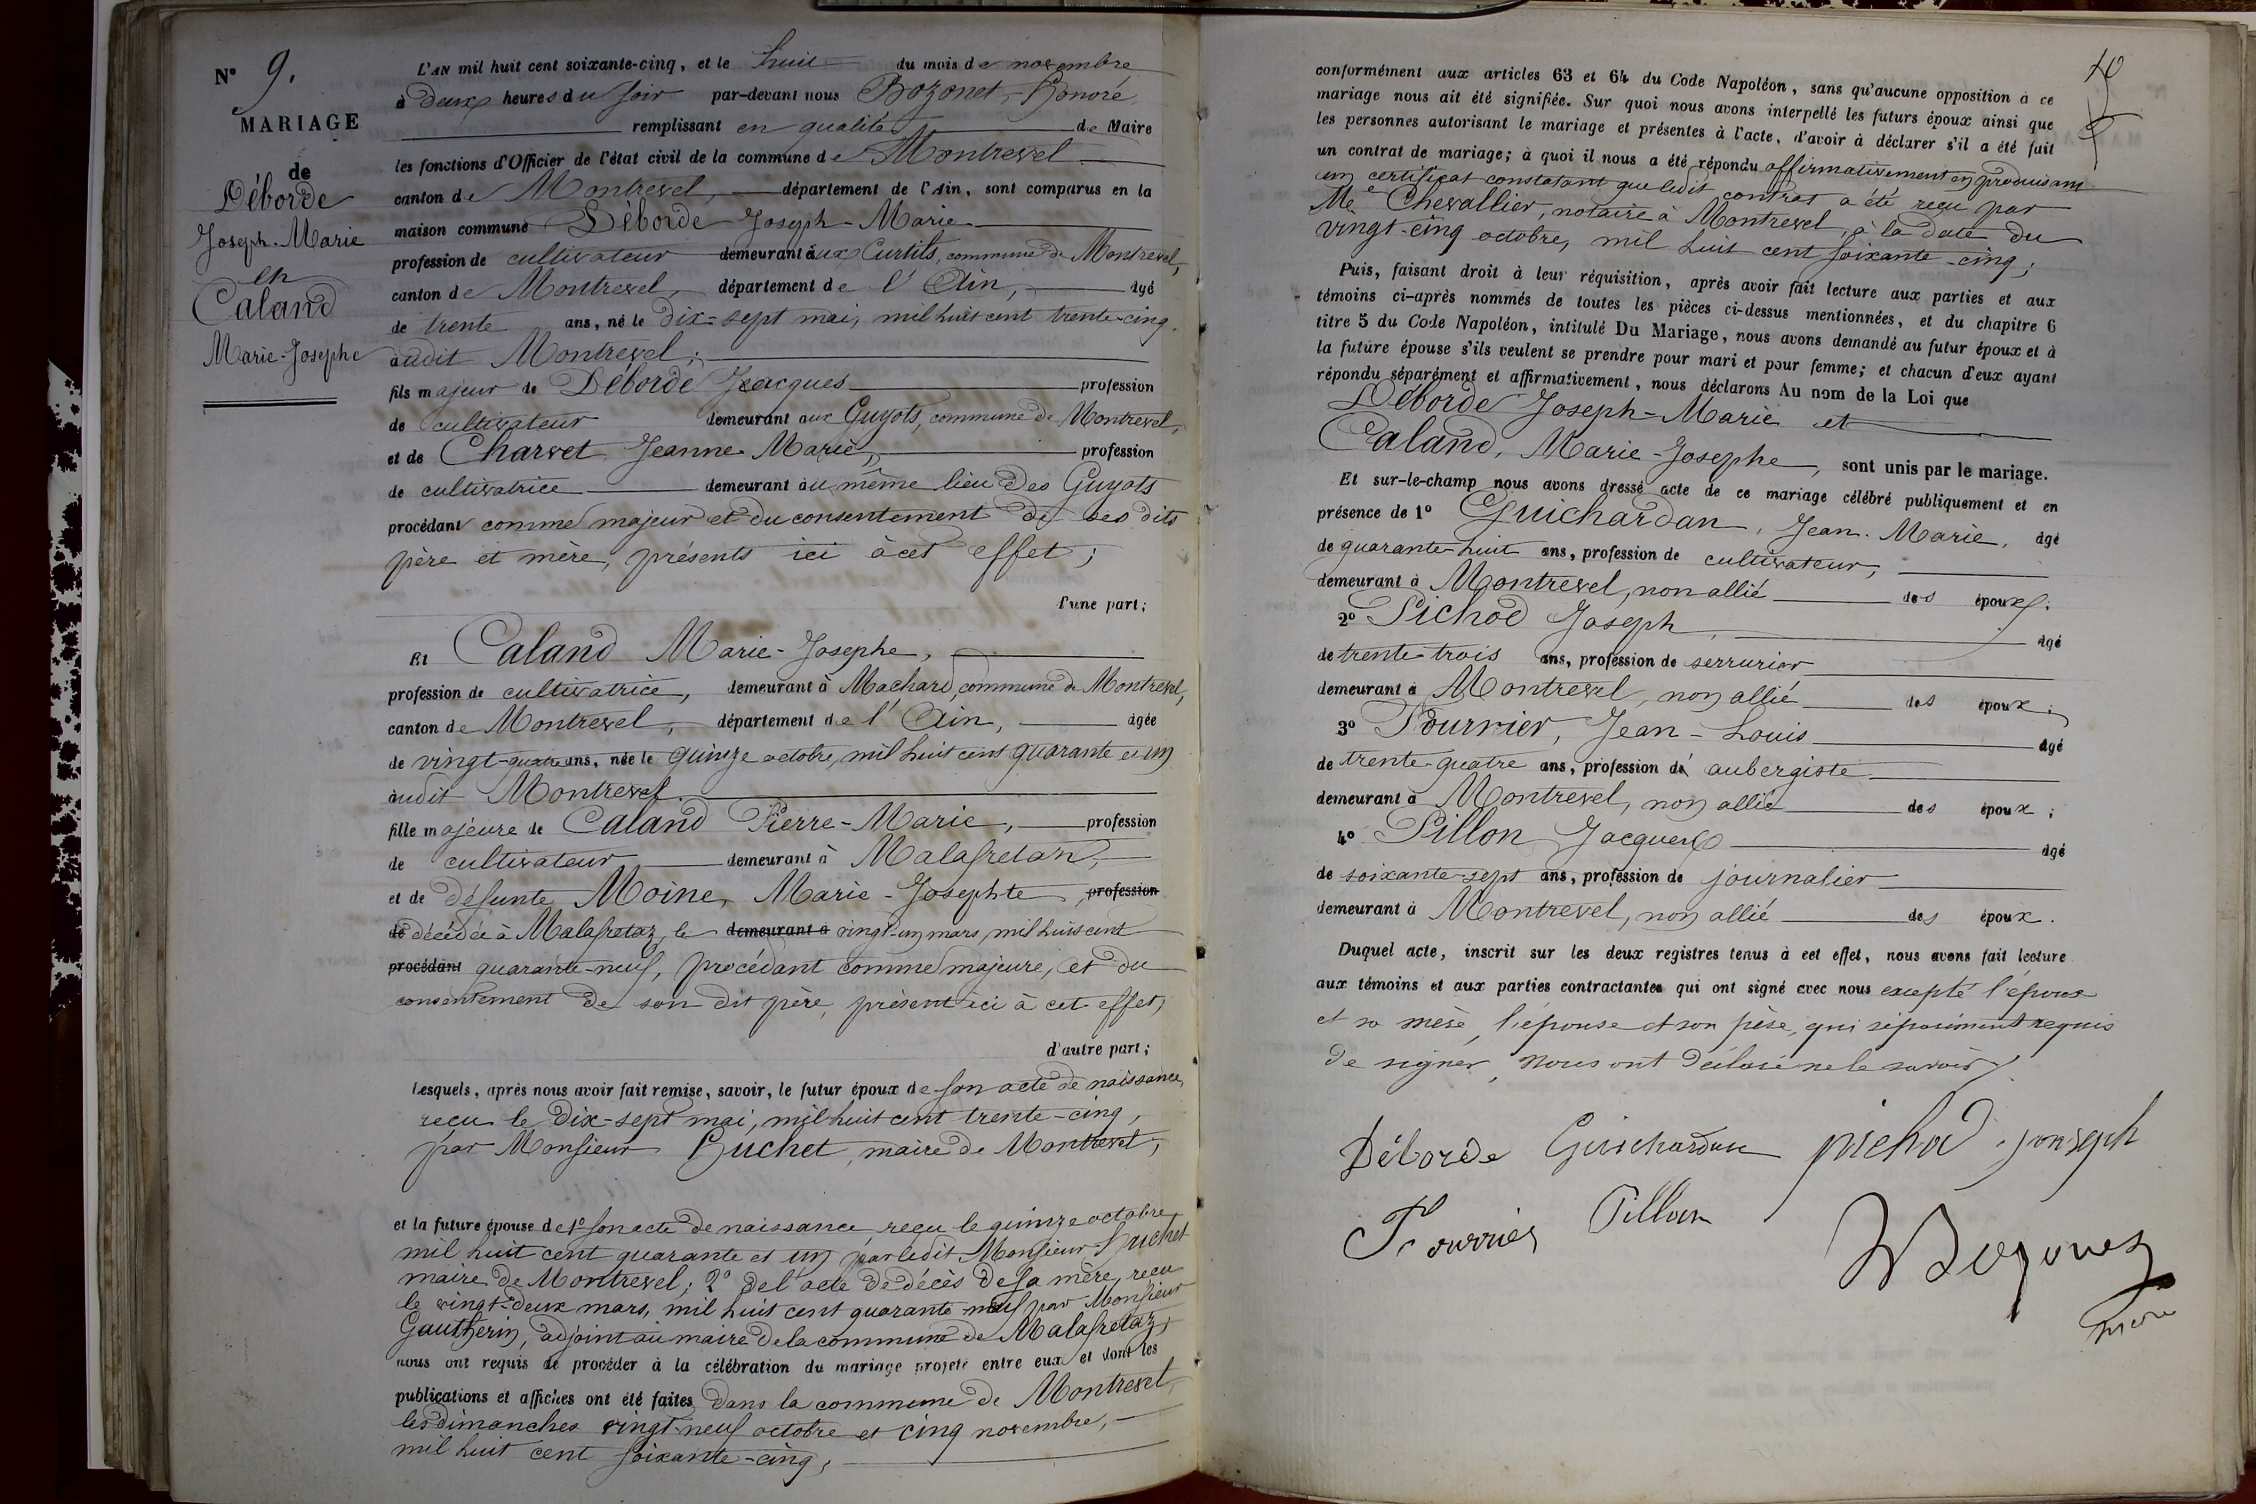 N° 9.
MARIAGE
de
Déborde
Joseph-Marie
en
Caland
Marie-Josephe
L'AN mil huit cent soixante-cinq, et le huit du mois de novembre
à deux heures du soir par-devant nous Bozonet, Honoré
remplissant en qualité de Maire
les fonctions d'Officier de l'état civil de la commune de Montrevel
canton de Montrevel, département de l'Ain, sont comparus en la
maison commune Déborde Joseph-Marie
profession de cultivateur demeurant aux Curtils, commune de Montrevel,
canton de Montrevel, département de l'Ain, âgé
de trente ans, né le dix-sept mai, mil huit cent trente-cinq.
audit Montrevel;
fils majeur de Déborde Jacques profession
de cultivateur demeurant aux Guyots, commune de Montrevel,
et de Charvet Jeanne-Marie, profession
de cultivatrice demeurant au même lieu des Guyots
procédant comme majeur et du consentement de ses dits
père et mère, présents ici à cet effet;
d'une part;
Et Caland Marie-Josephe,
profession de cultivatrice, demeurant à Machard, commune de Montrevel,
canton de Montrevel, département de l'Ain, âgée
de vingt-quatre ans, née le quinze octobre, mil huit cent quarante et un
audit Montrevel.
fille majeure de Caland Pierre-Marie, profession
de cultivateur demeurant à Malafretaz,
et de défunte Moine, Marie-Josephte, profession
de décédée à Malafretaz, le demeurant à vingt-un mars, mil huit cent
procédant quarante-neuf, procédant comme majeure, et du
consentement de son dit père, présent ici à cet effet,
d'autre part;
Lesquels, après nous avoir fait remise, savoir, le futur époux de son acte de naissance,
reçu le dix-sept mai, mil huit cent trente-cinq,
par Monsieur Huchet, maire de Montrevel,
et la future épouse de 1° son acte de naissance, reçu le quinze octobre,
mil huit cent quarante et un par ledit Monsieur Huchet
maire de Montrevel; 2° de l'acte de décès de sa mère, reçu
le vingt-deux mars, mil huit cent quarante-neuf par Monsieur
Gautherin, adjoint au maire de la commune de Malafretaz;
nous ont requis de procéder à la célébration du mariage projeté entre eux et dont les
publications et affiches ont été faites dans la commune de Montrevel,
les dimanches vingt-neuf octobre et cinq novembre,
mil huit cent soixante-cinq,
conformément aux articles 63 et 64 du Code Napoléon, sans qu'aucune opposition à ce
mariage nous ait été signifiée. Sur quoi nous avons interpellé les futurs époux ainsi que
les personnes autorisant le mariage et présentes à l'acte, d'avoir à déclarer s'il a été fait
un contrat de mariage; à quoi il nous a été répondu affirmativement en produisant
un certificat constatant que ledit contrat a été reçu par
Me Chevallier, notaire à Montrevel, à la date du
vingt-cinq octobre, mil huit cent soixante-cinq;
Puis, faisant droit à leur réquisition, après avoir fait lecture aux parties et aux
témoins ci-après nommés de toutes les pièces ci-dessus mentionnées, et du chapitre 6
titre 5 du Code Napoléon, intitulé Du Mariage, nous avons demandé au futur époux et à
la future épouse s'ils veulent se prendre pour mari et pour femme; et chacun d'eux ayant
répondu séparément et affirmativement, nous déclarons Au nom de la Loi que
Déborde Joseph-Marie et
Caland, Marie-Josephe, sont unis par le mariage.
Et sur-le-champ nous avons dressé acte de ce mariage célébré publiquement et en
présence de 1° Guichardan, Jean-Marie, âgé
de quarante-huit ans, profession de cultivateur,
demeurant à Montrevel, non allié des époux;
2° Pichod Joseph, âgé
de trente-trois ans, profession de serrurier
demeurant à Montrevel, non allié des époux;
3° Fourrier, Jean-Louis âgé
de trente-quatre ans, profession de aubergiste
demeurant à Montrevel, non allié des époux;
4° Pillon Jacques âgé
de soixante-sept ans, profession de journalier
demeurant à Montrevel, non allié des époux.
Duquel acte, inscrit sur les deux registres tenus à cet effet, nous avons fait lecture
aux témoins et aux parties contractantes qui ont signé avec nous excepté l'époux
et sa mère, l'épouse et son père, qui séparément requis
de signer, nous ont déclaré ne le savoir.
Déborde Guichardan pichod jonseph
Fourrier Pillon
Bozonet
maire